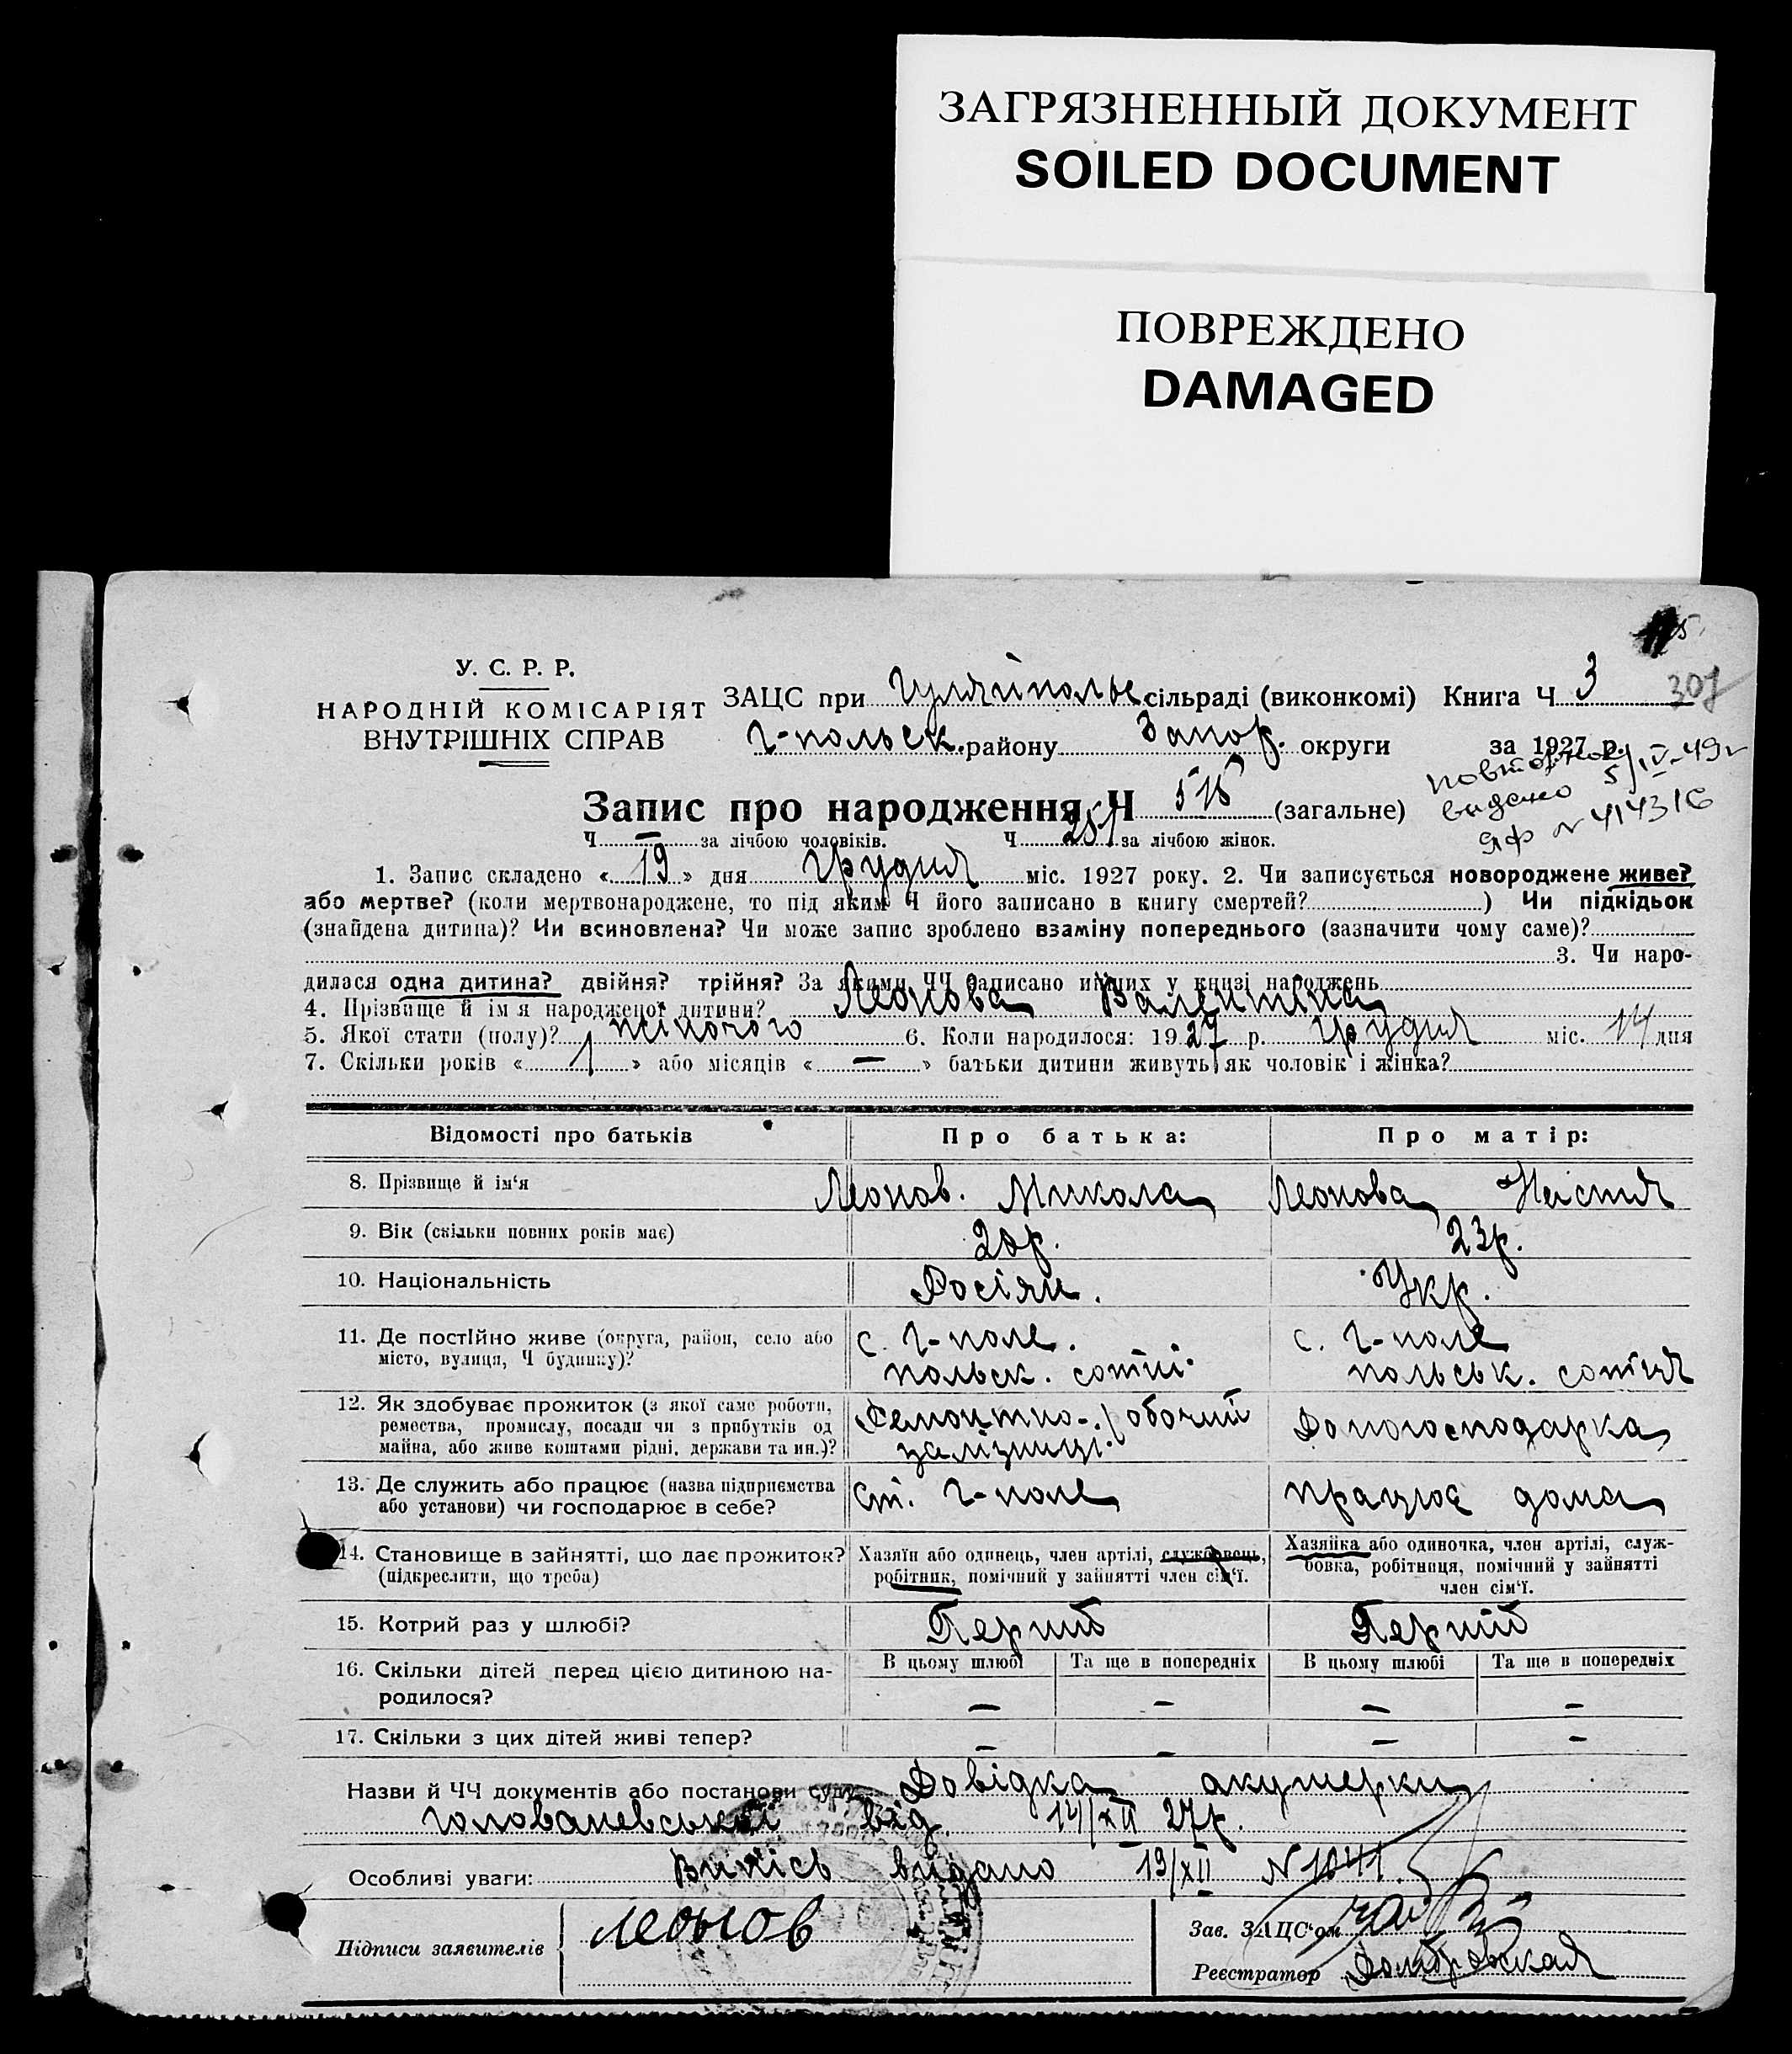 ЗАГРЯЗНЕННЫЙ ДОКУМЕНТ
SOILED DOCUMENT
ПОВРЕЖДЕНО
DAMAGED
У. С. Р. Р.
НАРОДНІЙ КОМІСАРІЯТ
ВНУТРІШНІХ СПРАВ
ЗАЦС при Гуляйпольс сільраді (виконкомі) Книга Ч 3 307
Г-польск. району Запор. округи за 1927 р.
повторно 5/IV-49г
видано
ЯФ N 414316
Запис про народження Ч 515 (загальне)
Ч — за лічбою чоловіків. Ч 251 за лічбою жінок.
1. Запис складено «19» дня Грудня міс. 1927 року. 2. Чи записується новороджене живе?
або мертве? (коли мертвонароджене, то під яким Ч його записано в книгу смертей? ) Чи підкідьок
(знайдена дитина)? Чи всиновлена? Чи може запис зроблено взаміну попереднього (зазначити чому саме)?
3. Чи наро-
дилася одна дитина? двійня? трійня? За якими ЧЧ записано инших у книзі народжень
4. Прізвище й ім'я народженої дитини? Леонова Валентина
5. Якої стати (полу)? жіночого 6. Коли народилося: 1927 р. Грудня міс. 14 дня
7. Скільки років «1» або місяців «—» батьки дитини живуть як чоловік і жінка?
Відомості про батьків Про батька: Про матір:
8. Прізвище й ім'я Леонов. Микола Леонова Настя
9. Вік (скільки повних років має) 20р. 23р.
10. Національність Росіян. Укр.
11. Де постійно живе (округа, район, село або місто, вулиця, Ч будинку)? с. Г-поле. с. Г-поле
польск. сотні. польськ. сотня
12. Як здобуває прожиток (з якої саме роботи, ремества, промислу, посади чи з прибутків од майна, або живе коштами рідні, держави та ин.)? Ремонтно-робочий Домогосподарка
залізниці.
13. Де служить або працює (назва підприємства або установи) чи господарює в себе? ст. Г-поле працює дома
14. Становище в зайнятті, що дає прожиток? (підкреслити, що треба)
Хазяїн або одинець, член артілі, службовець, робітник, помічний у зайнятті член сім'ї.
Хазяйка або одиночка, член артілі, служ-
бовка, робітниця, помічний у зайнятті
член сім'ї.
15. Котрий раз у шлюбі? Перший Перший
16. Скільки дітей перед цією дитиною на-
родилося?
В цьому шлюбі Та ще в попередніх В цьому шлюбі Та ще в попередніх
— — — —
17. Скільки з цих дітей живі тепер? — — — —
Назви й ЧЧ документів або постанови суду Довідка акушерки
Голованевської від. 14/XII 27р.
Особливі уваги: Випісь видано 19/XII N 1041.
Підписи заявителів Леонов
Зав. ЗАЦС'ом
Реєстратор Домбровская